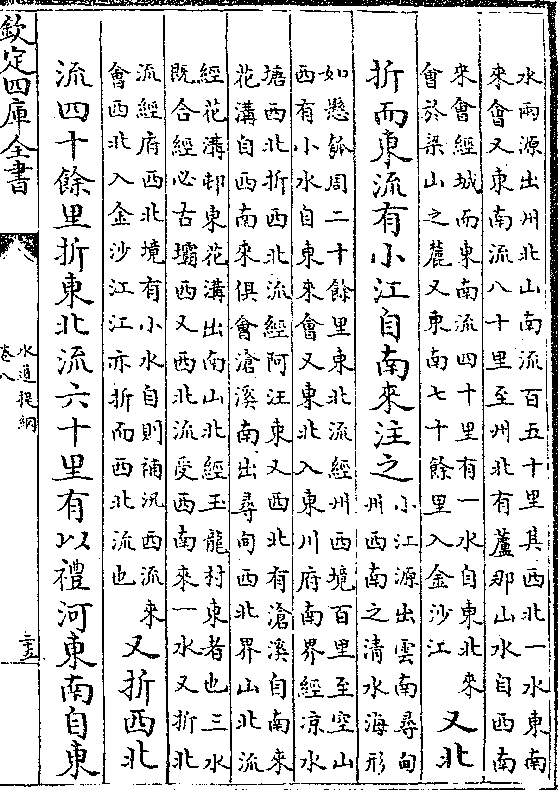 水兩源出州北山南流百五十里其西北一水東南
來會又東南流八十里至州北有蘆那山水自西南
來會經城而東南流四十里有一水自東北來
會於梁山之麓又東南七十餘里入金沙江
又北
折而東流有小江自南來注之
小江源出雲南尋甸
州西南之清水海形
如懸瓠周二十餘里東北流經州西境百里至空山
西有小水自東來會又東北入東川府南界經涼水
塘西北折西北流經阿汪東又西北有滄溪自南來
花溝自西南來俱會滄溪南出尋甸西北界山北流
經花溝邨東花溝出南山北經玉龍村東者也三水
既合經必古壩西又西北流受西南來一水又折北
流經府西北境有小水自則補汛西流來
會西北入金沙江江亦折而西北流也
又折西北
流四十餘里折東北流六十里有以禮河東南自東
欽定四庫全書
水道提綱
卷八